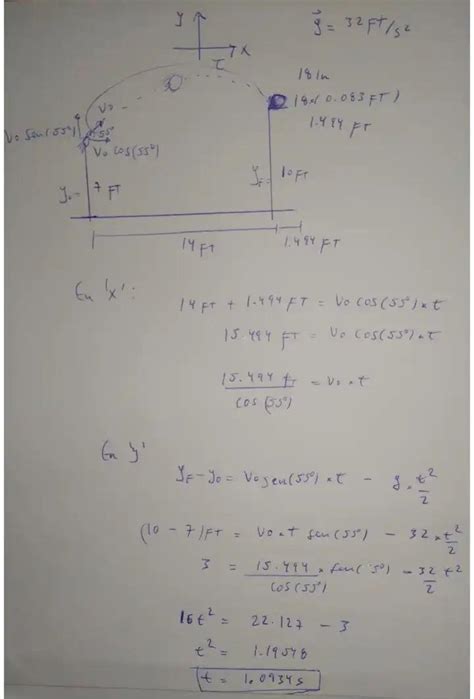 y
g⃗ = 32 FT/s²
x
18 In
18x(0.083 FT)
1.494 FT
Vo
Vo sen(55°)
55°
Vo cos(55°)
Yo = 7 FT
YF = 10 FT
14 FT
1.494 FT
En 'x':
14 FT + 1.494 FT = Vo cos(55°) * t
15.494 FT = Vo cos(55°) * t
15.494 ft / cos(55°) = Vo * t
En y'
YF - Yo = Vo sen(55°) * t - g * t²/2
(10 - 7)FT = Vo * T sen(55°) - 32 * t²/2
3 = 15.494 / cos(55°) * sen(5°) - 32/2 t²
16t² = 22.127 - 3
t² = 1.19548
t = 1.0934s